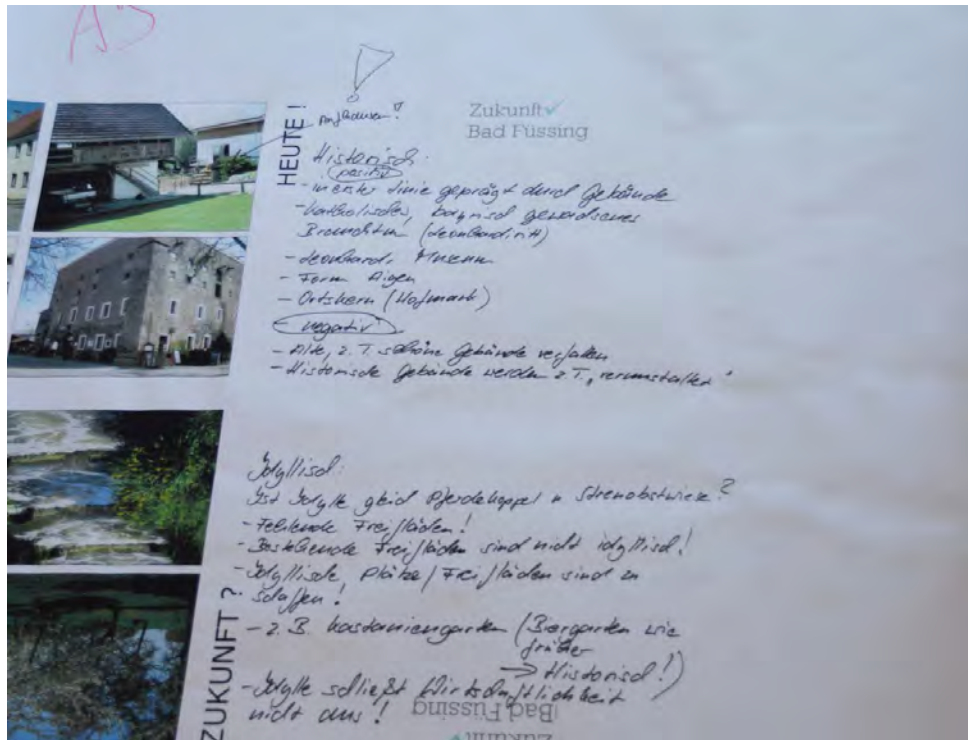 A3
HEUTE !
Anfbauen"!
Zukunft
Bad Füssing
Historisch:
positiv
- in erster Linie geprägt durch Gebäude
- katholisches, bayrisch gewachsenes
Brauchtum (Leonhardiritt)
- Leonhardi Museum
- Form Aigen
- Ortskern (Hofmark)
- negativ
- Alte, z. T. schöne Gebäude verfallen
- Historische Gebäude werden z. T. „verunstaltet"
Idyllisch:
Ist Idylle gleich Pferdekoppel u Streuobstwiese?
- Fehlende Freiflächen!
- Bestehende Freiflächen sind nicht idyllisch!
- Idyllische Plätze / Freiflächen sind zu
schaffen!
- z. B. Kastaniengarten (Biergarten wie
früher
→ Historisch!)
- Idylle schließt Wirtschaftlichkeit
nicht aus!
ZUKUNFT ?
Bad Füssing
Zukunft